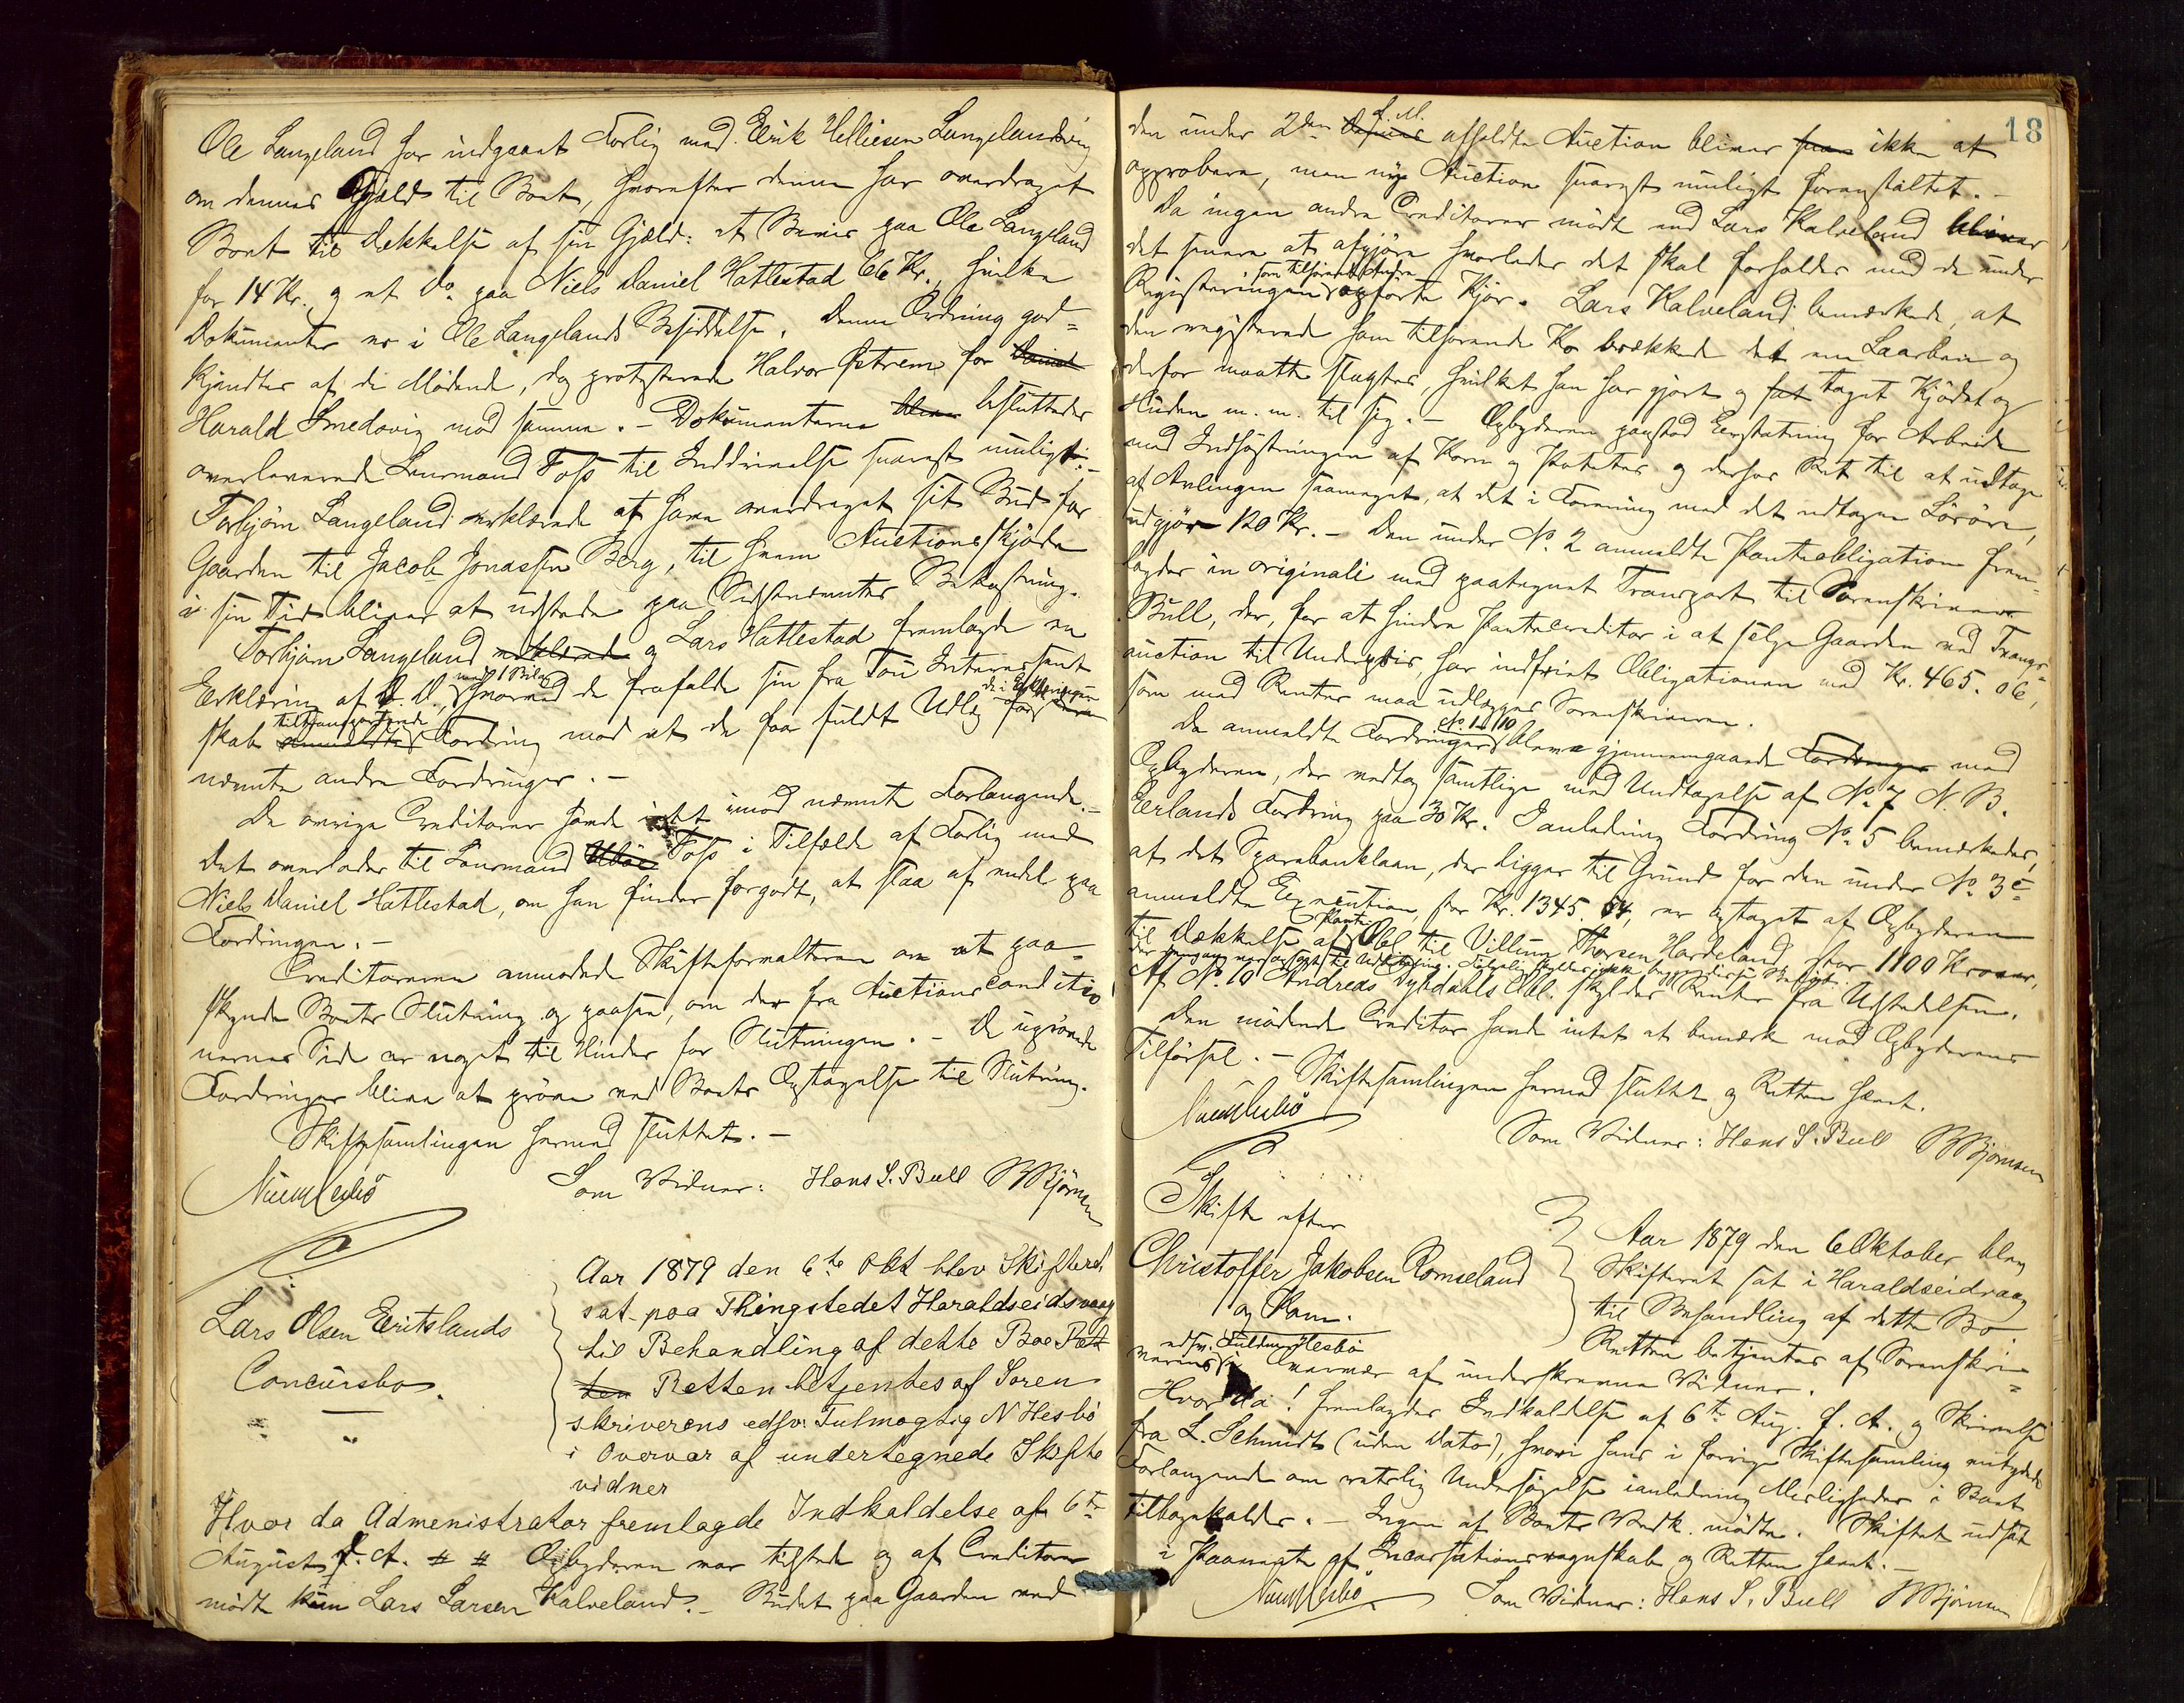 Ole Langeland har indgaaet Forlig med Erik Helliesen Langelandsvig
om dennes Gjæld til Boet, hvorefter denne har overdraget
Boet til Dækkelse af sin Gjæld: et Bevis paa Ole Langeland
for 14 Kr. og et do. paa Niels Daniel Hatlestad 66 Kr., hvilke
Dokumenter er i Ole Langelands Besiddelse. Denne Ordning god-
kjendtes af de Mødende, dog protesterede Halvor Østrem for
Harald Smedsvig mod samme. – Dokumenterne blev besluttedes
overleverede Lensmand Foss til Inddrivelse snarest muligt. –
Torbjørn Langeland erklærede at have overdraget sit Bud for
Gaarden til Jacob Jonassen Berg, til hvem Auctionsskjøde
i sin Tid bliver at udstede paa Sidstnævntes Bekostning.
Torbjørn Langeland erklærede og Lars Hatlestad fremlagde en
Erklæring af D. D., med 1 Bilag hvorved de frafaldt sin fra Tou Interessent
skab tiltransporterede anmeldte Fordring mod at de faa fuldt Udlæg for de i Erklæringen
nævnte andre Fordringer. –
De øvrige Creditorer havde intet imod nævnte Forlangende. –
Det overlodes til Lensmand Foss i Tilfælde af Forlig med
Niels Daniel Hatlestad, om han finder forgodt, at slaa af endel paa
Fordringen. –
Creditorerne anmodede Skifteforvalteren om at paa-
skynde Boets Slutning og paase, om der fra Auctionsconditio
nernes Side er noget til Hinder for Slutningen. – De uprøvede
Fordringer bliver at prøve ved Boets Optagelse til Slutning.
Skiftesamlingen hermed sluttet. –
Som Vidner: Hans S. Bull
Lars Olsen Eeritslands
Concursbo.
Aar 1879 den 6te Okt blev Skifteret
sat paa Thingstedet Haraldseidsvaag
til Behandling af dette Boe Ret
ten Retten betjentes af Soren
skriverens edsv. Fulmægtig N Hesbö
i Overvær af undertegnede Skifte
vidner
Hvor da Admenistrator fremlagde Indkaldelse af 6te
August d. A. # # Opbyderen var tilstede og af Creditorer
mödt kun Lars Larsen Kalveland. – Budet paa Gaarden ved
18
den under 2den d. M. afholdte Auction bliver ikke at
approbere, men ny Auction snarest muligt foranstaltet. –
Da ingen andre Creditorer mödte end Lars Kalveland bliver
det senere at afgjöre hvorledes det skal forholdes med de under
Registeringen som tilhørende Andre opførte Kjør. Lars Kalveland bemærkede, at
den registerede ham tilhørende Ko brækkede det ene Laarben og
derfor maatte slagtes, hvilket han har gjort og taget Kjödet og
Huden m. m. til sig. – Opbyderen paastod Erstatning for Arbeide
med Indhøstningen af Korn og Poteter og derfor Ret til at udtage
af Avlingen saameget, at det i Forening med det udtagne Løsøre,
udgjør 120 Kr. – Den under No. 2 anmeldte Panteobligation frem-
lagdes in originali med paategnet Transport til Sorenskriver
Bull, der, for at hindre Pantecreditor i at sælge Gaarden ved Tvangs-
auction til Underpris, har indfriet Obligationen med Kr. 465. 06,
som med Renter maa udlægges Sorenskriveren.
De anmeldte Fordringer No 1–10 bleve gjennemgaaede Fordringer med
Opbyderen, der vedtog samtlige med Undtagelse af No. 7 N. B.
Eerlands Fordring paa 30 Kr. I anledning Fordring No. 5 bemærkedes,
at det Sparebanklaan, der ligger til Grund for den under No. 3
anmeldte Execution, stor Kr. 1345. 54, er optaget af Opbyderen
til Dækkelse af Pante Obl. til Villum Thorsen Hardeland, stor 1100 Kroner,
Af No. 10 Andreas Dybdahls Obl. skyldes Renter fra Udstedelsen.
Den mödende Creditor havde intet at bemærke mod Opbyderens
Tilförsel. – Skiftesamlingen hermed sluttet og Retten hævet.
Som Vidner: Hans S. Bull
Skifte efter
Christoffer Jakobsen Romseland
og Kone.
Aar 1879 den 6 Oktober blev
Skifteret sat i Haraldseidvaag
til Behandling af dette Bo
Retten betjentes af Sorenskri-
verens edsv. Fuldm. Hesbö i Overvær af underskrevne Vidner.
Hvor da! fremlagdes Indkaldelse af 6te Aug. d. A. og Skrivelse
fra L. Schmidt (uden Dato), hvori hans i forrige Skiftesamling
Forlangende om retslig Undersøgelse i anledning Misligheder i Boet
tilbagekaldes. – Ingen af Boets Vedk. mödte. Skiftet udsat
i Paavente af Incassationsregnskab og Retten hævet. –
Som Vidner: Hans S. Bull